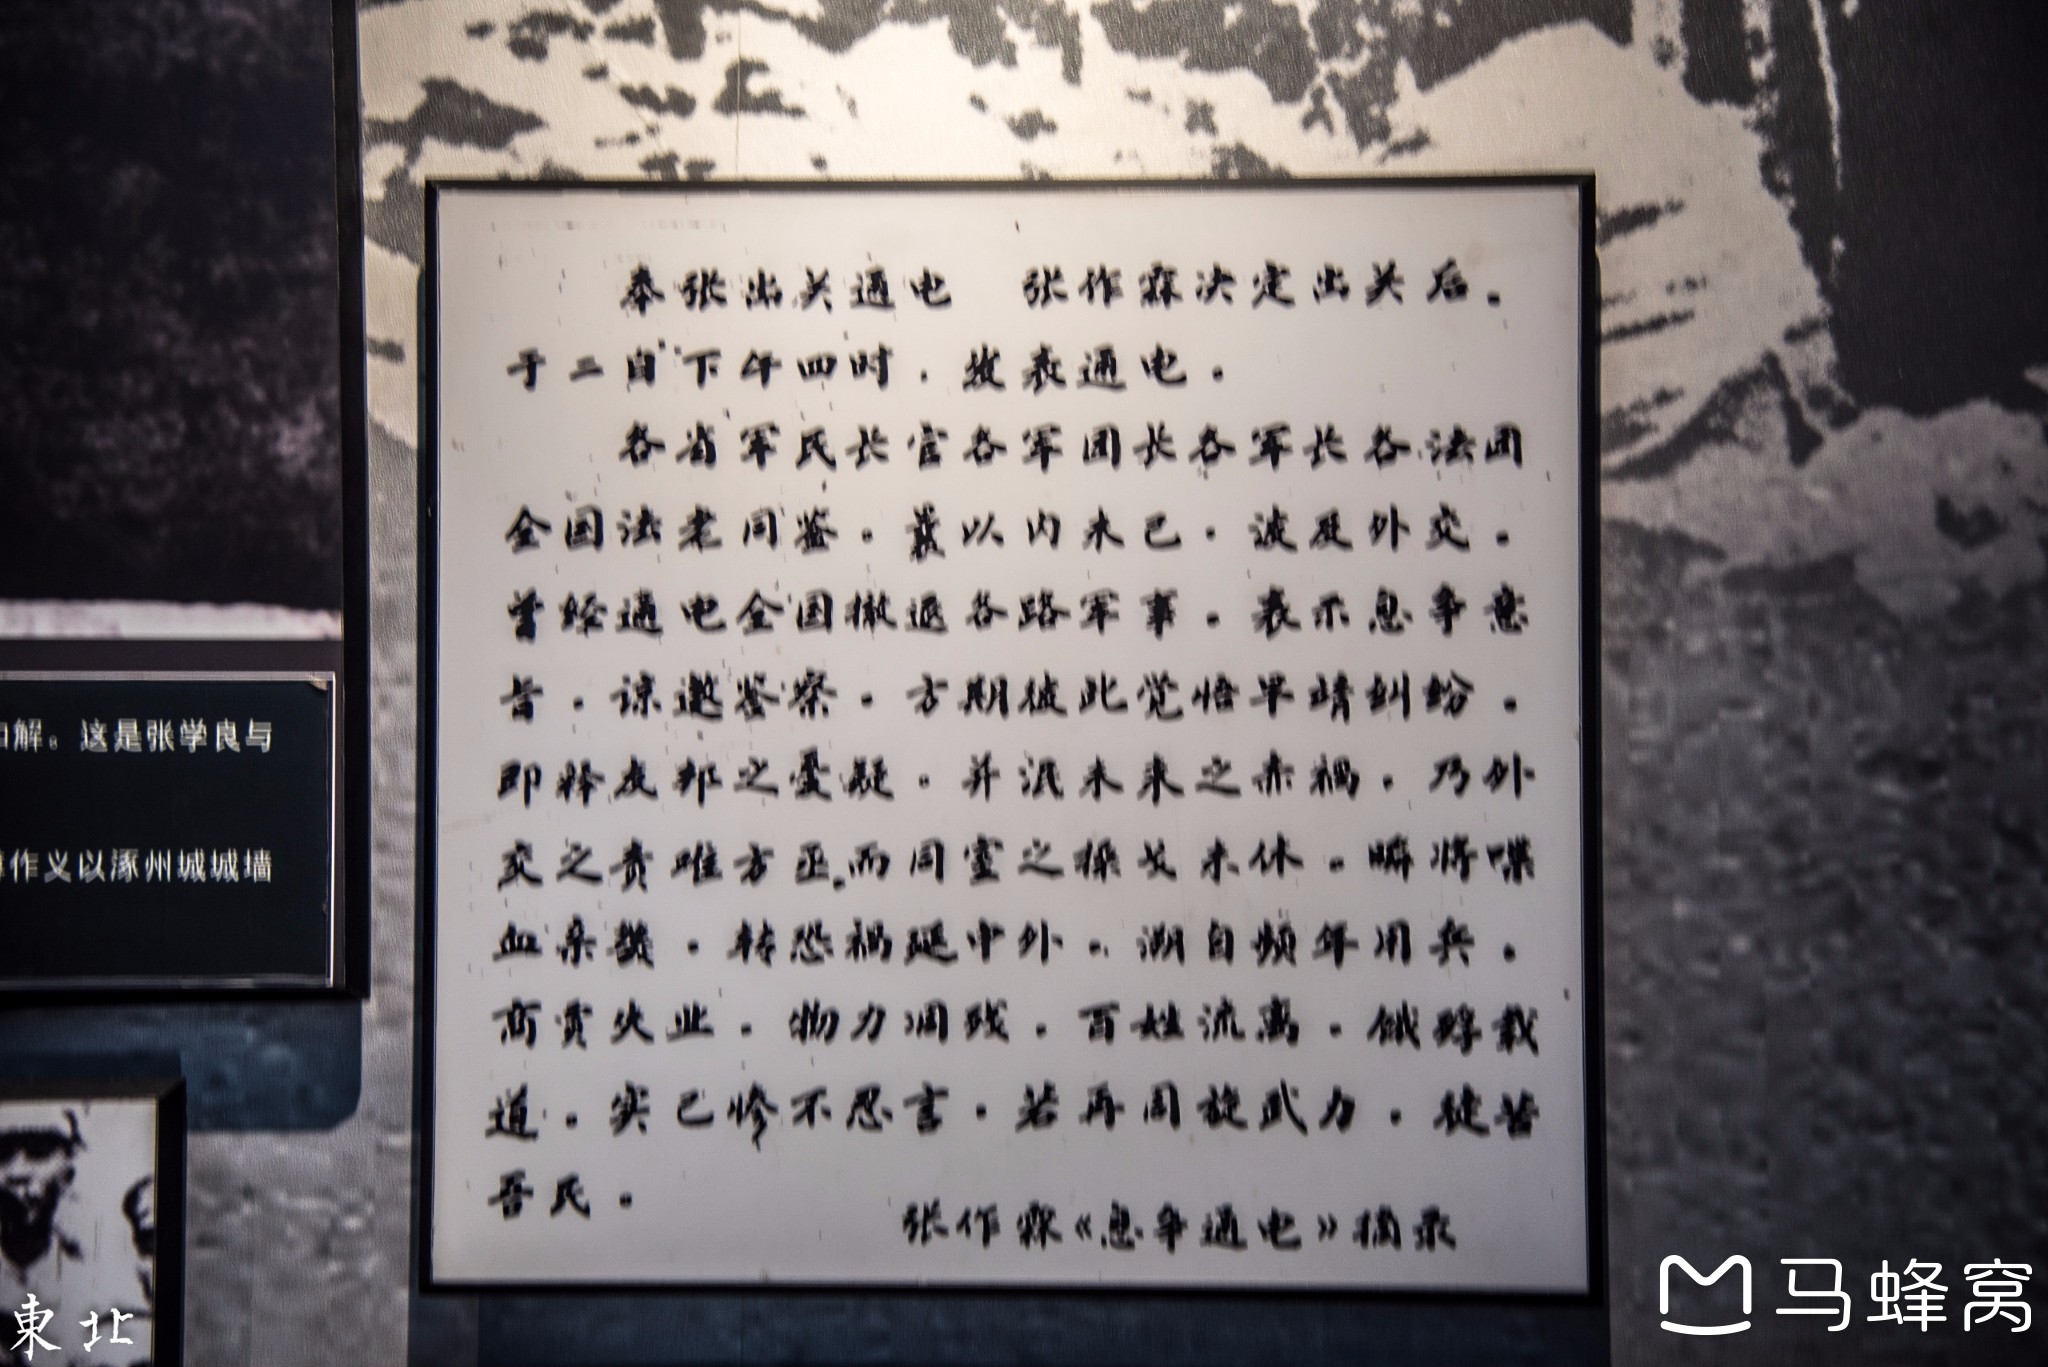 奉张出关通电 张作霖决定出关后。
于二日下午四时．发表通电．
各省军民长官各军团长各军长各法团
全国法老同鉴．曩以内未已．波及外交．
曾经通电全国撤退各路军事．表示息争意
旨．谅邀鉴察．方期彼此觉悟早靖纠纷．
即释友邦之忧疑．并泯未来之赤祸．乃外
交之责难方亟．而同室之操戈未休．瞬将喋
血京畿．转恐祸延中外．溯自频年用兵．
商贾失业．物力凋残．百姓流离．饿殍载
道．实已惨不忍言．若再周旋武力．徒苦
吾民．
张作霖《息争通电》摘录
解。这是张学良与
作义以涿州城城墙
東北
马蜂窝